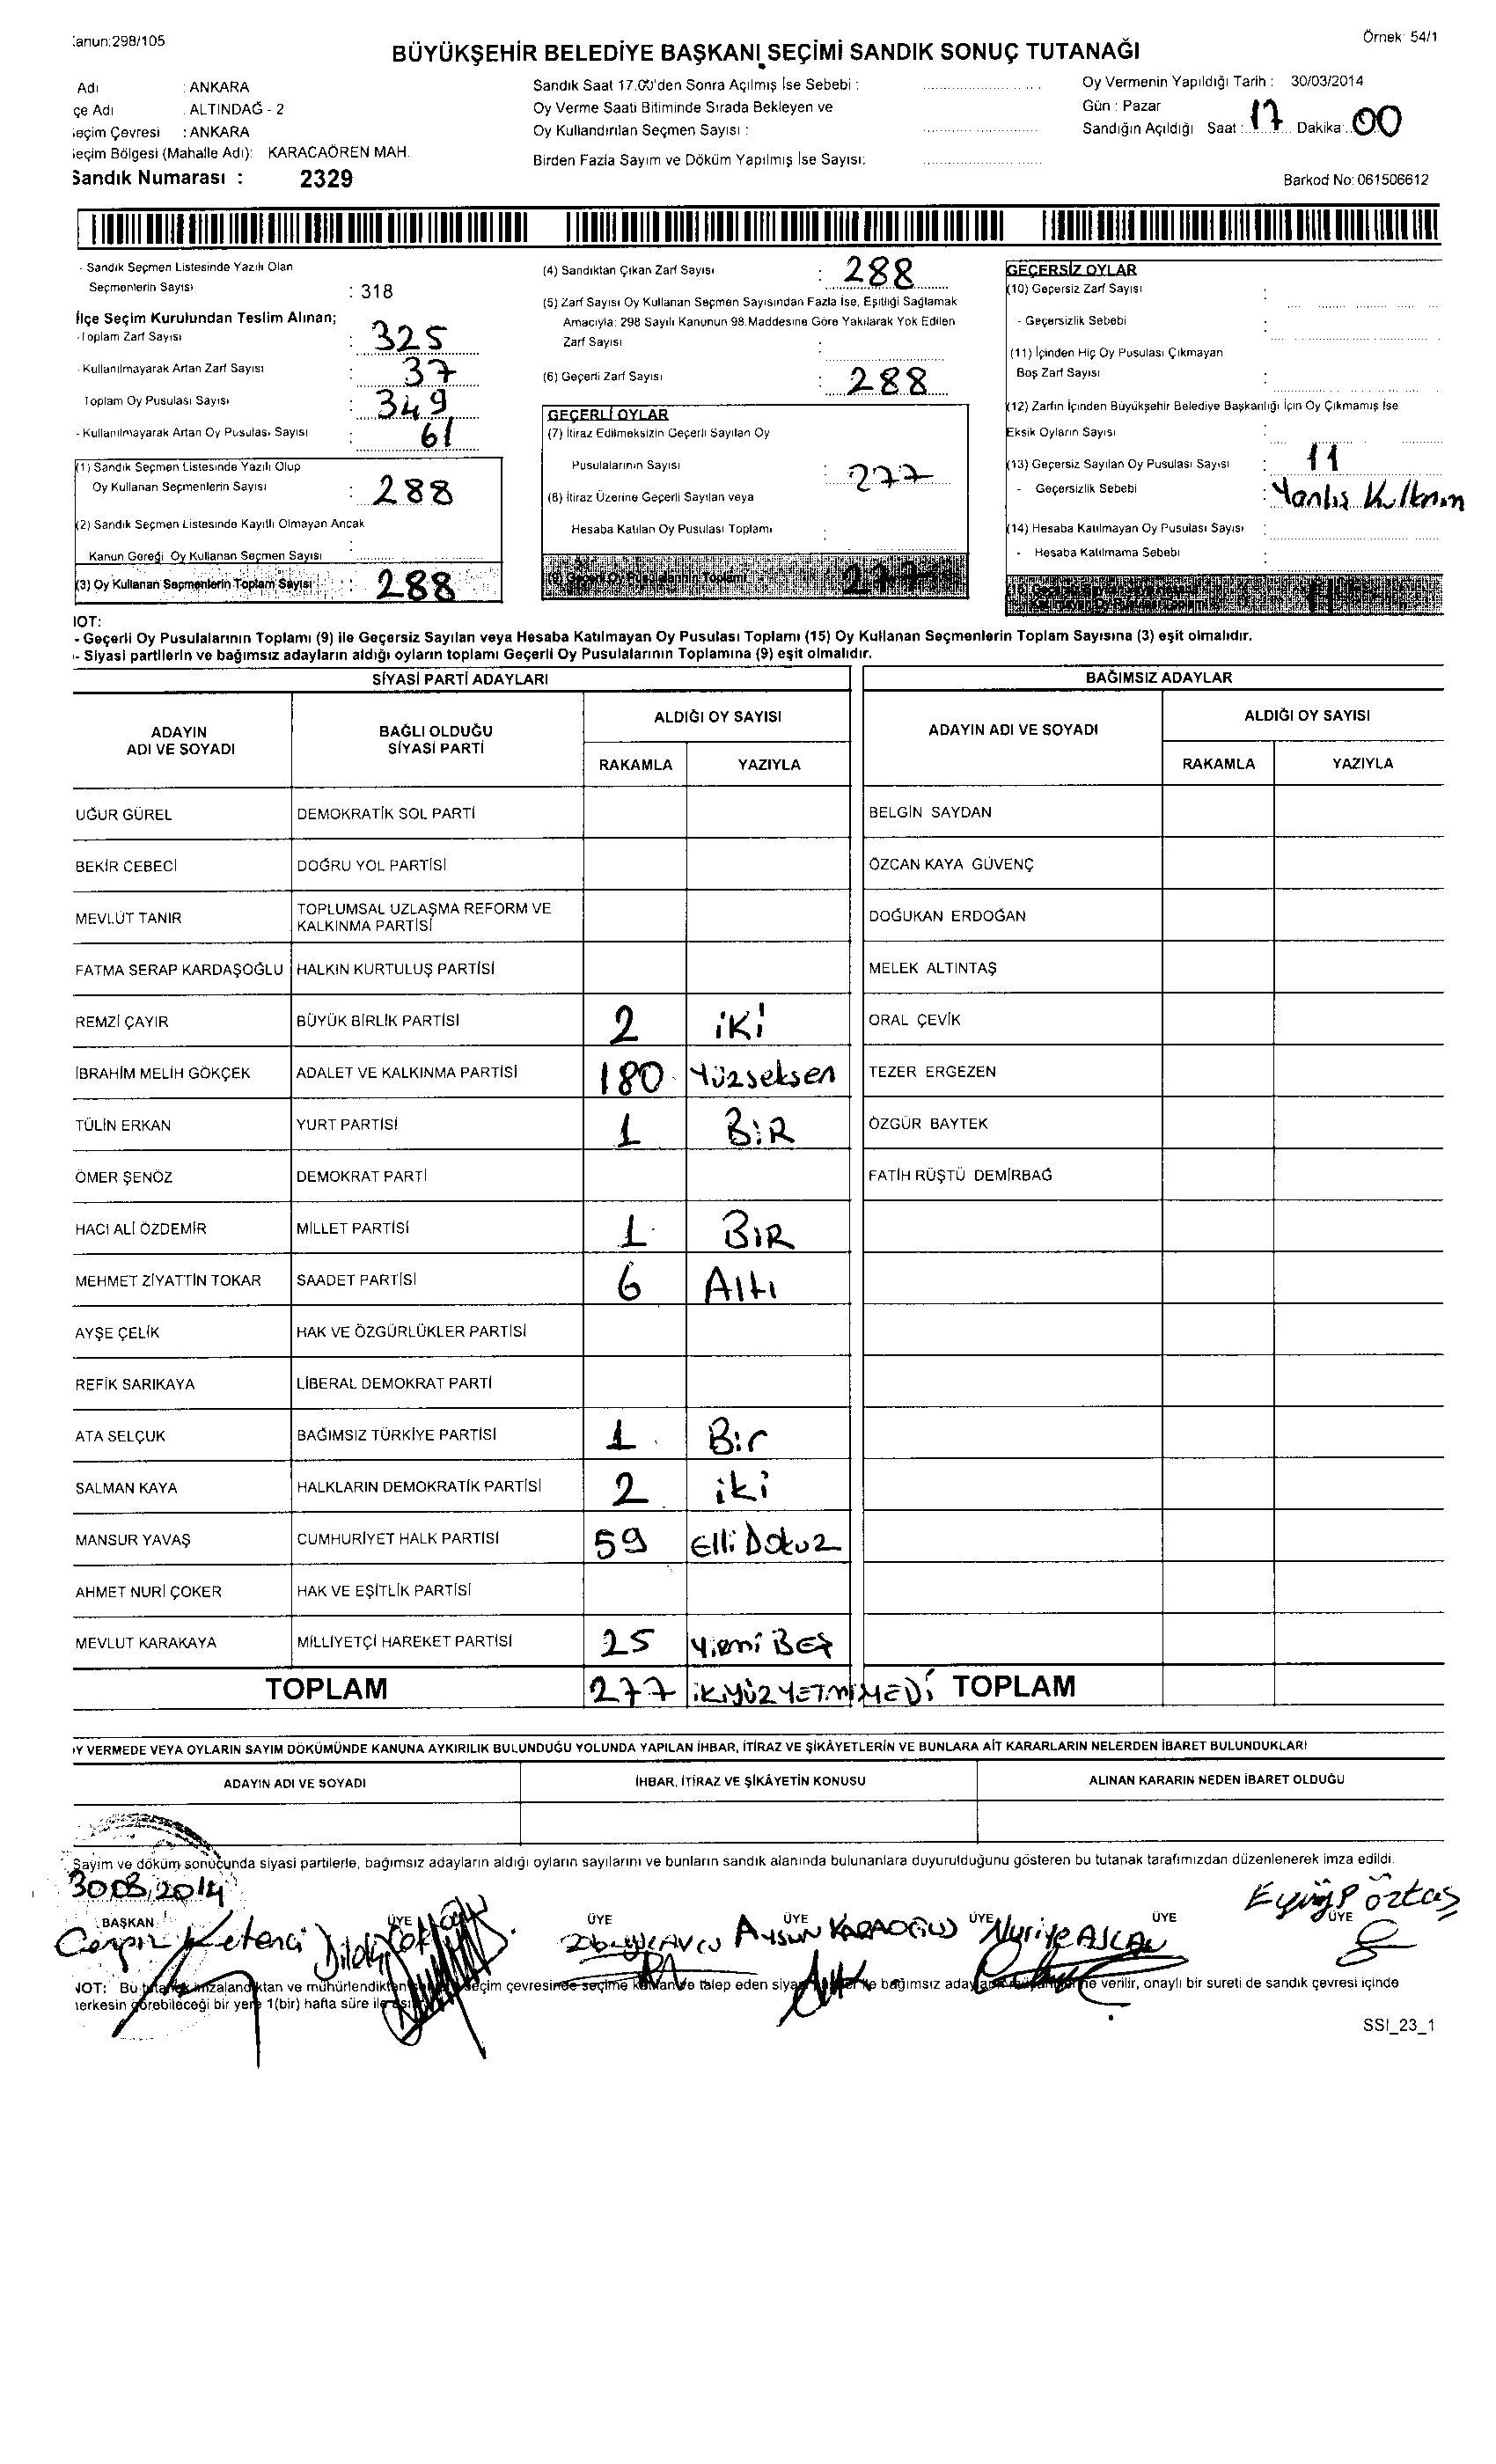 Kanun:298/105
Örnek: 54/1
BÜYÜKŞEHİR BELEDİYE BAŞKANI SEÇİMİ SANDIK SONUÇ TUTANAĞI
Adı : ANKARA
çe Adı : ALTINDAĞ - 2
eçim Çevresi : ANKARA
eçim Bölgesi (Mahalle Adı): KARACAÖREN MAH.
Sandık Numarası : 2329
Sandık Saat 17.00'den Sonra Açılmış İse Sebebi :
Oy Verme Saati Bitiminde Sırada Bekleyen ve
Oy Kullandırılan Seçmen Sayısı :
Birden Fazla Sayım ve Döküm Yapılmış İse Sayısı:
Oy Vermenin Yapıldığı Tarih : 30/03/2014
Gün : Pazar
Sandığın Açıldığı Saat : 17 Dakika 00
Barkod No: 061506612
- Sandık Seçmen Listesinde Yazılı Olan
Seçmenlerin Sayısı : 318
İlçe Seçim Kurulundan Teslim Alınan;
-Toplam Zarf Sayısı : 325
- Kullanılmayarak Artan Zarf Sayısı : 37
Toplam Oy Pusulası Sayısı : 349
- Kullanılmayarak Artan Oy Pusulası Sayısı : 61
(1) Sandık Seçmen Listesinde Yazılı Olup
Oy Kullanan Seçmenlerin Sayısı : 288
(2) Sandık Seçmen Listesinde Kayıtlı Olmayan Ancak
Kanun Gereği Oy Kullanan Seçmen Sayısı :
(3) Oy Kullanan Seçmenlerin Toplam Sayısı : 288
(4) Sandıktan Çıkan Zarf Sayısı : 288
(5) Zarf Sayısı Oy Kullanan Seçmen Sayısından Fazla İse, Eşitliği Sağlamak
Amacıyla: 298 Sayılı Kanunun 98.Maddesine Göre Yakılarak Yok Edilen
Zarf Sayısı :
(6) Geçerli Zarf Sayısı : 288
GEÇERLİ OYLAR
(7) İtiraz Edilmeksizin Geçerli Sayılan Oy
Pusulalarının Sayısı : 277
(8) İtiraz Üzerine Geçerli Sayılan veya
Hesaba Katılan Oy Pusulası Toplamı :
(9) Geçerli Oy Pusulalarının Toplamı 277
GEÇERSİZ OYLAR
(10) Geçersiz Zarf Sayısı :
- Geçersizlik Sebebi :
(11) İçinden Hiç Oy Pusulası Çıkmayan
Boş Zarf Sayısı :
(12) Zarfın İçinden Büyükşehir Belediye Başkanlığı İçin Oy Çıkmamış İse
Eksik Oyların Sayısı :
(13) Geçersiz Sayılan Oy Pusulası Sayısı : 11
- Geçersizlik Sebebi : Yanlış
(14) Hesaba Katılmayan Oy Pusulası Sayısı :
- Hesaba Katılmama Sebebi :
11
NOT:
- Geçerli Oy Pusulalarının Toplamı (9) ile Geçersiz Sayılan veya Hesaba Katılmayan Oy Pusulası Toplamı (15) Oy Kullanan Seçmenlerin Toplam Sayısına (3) eşit olmalıdır.
- Siyasi partilerin ve bağımsız adayların aldığı oyların toplamı Geçerli Oy Pusulalarının Toplamına (9) eşit olmalıdır.
SİYASİ PARTİ ADAYLARI
ADAYIN ADI VE SOYADI BAĞLI OLDUĞU SİYASİ PARTİ ALDIĞI OY SAYISI
RAKAMLA YAZIYLA
UĞUR GÜREL DEMOKRATİK SOL PARTİ
BEKİR CEBECİ DOĞRU YOL PARTİSİ
MEVLÜT TANIR TOPLUMSAL UZLAŞMA REFORM VE
KALKINMA PARTİSİ
FATMA SERAP KARDAŞOĞLU HALKIN KURTULUŞ PARTİSİ
REMZİ ÇAYIR BÜYÜK BİRLİK PARTİSİ 2 iKi
İBRAHİM MELİH GÖKÇEK ADALET VE KALKINMA PARTİSİ 180 Yüzseksen
TÜLİN ERKAN YURT PARTİSİ 1 BiR
ÖMER ŞENÖZ DEMOKRAT PARTİ
HACI ALİ ÖZDEMİR MİLLET PARTİSİ 1 BiR
MEHMET ZİYATTİN TOKAR SAADET PARTİSİ 6 Altı
AYŞE ÇELİK HAK VE ÖZGÜRLÜKLER PARTİSİ
REFİK SARIKAYA LİBERAL DEMOKRAT PARTİ
ATA SELÇUK BAĞIMSIZ TÜRKİYE PARTİSİ 1 Bir
SALMAN KAYA HALKLARIN DEMOKRATİK PARTİSİ 2 iki
MANSUR YAVAŞ CUMHURİYET HALK PARTİSİ 59 Elli Dokuz
AHMET NURİ ÇOKER HAK VE EŞİTLİK PARTİSİ
MEVLUT KARAKAYA MİLLİYETÇİ HAREKET PARTİSİ 25 Yiemi BEŞ
TOPLAM 277 iKiYüZYETMiŞYEDİ
BAĞIMSIZ ADAYLAR
ADAYIN ADI VE SOYADI ALDIĞI OY SAYISI
RAKAMLA YAZIYLA
BELGİN SAYDAN
ÖZCAN KAYA GÜVENÇ
DOĞUKAN ERDOĞAN
MELEK ALTINTAŞ
ORAL ÇEVİK
TEZER ERGEZEN
ÖZGÜR BAYTEK
FATİH RÜŞTÜ DEMİRBAĞ
TOPLAM
OY VERMEDE VEYA OYLARIN SAYIM DÖKÜMÜNDE KANUNA AYKIRILIK BULUNDUĞU YOLUNDA YAPILAN İHBAR, İTİRAZ VE ŞİKÂYETLERİN VE BUNLARA AİT KARARLARIN NELERDEN İBARET BULUNDUKLARI
ADAYIN ADI VE SOYADI İHBAR, İTİRAZ VE ŞİKÂYETİN KONUSU ALINAN KARARIN NEDEN İBARET OLDUĞU
Sayım ve döküm sonucunda siyasi partilerle, bağımsız adayların aldığı oyların sayılarını ve bunların sandık alanında bulunanlara duyurulduğunu gösteren bu tutanak tarafımızdan düzenlenerek imza edildi.
30.03.2014
Eyüp öztaş
BAŞKAN ÜYE ÜYE ÜYE ÜYE ÜYE ÜYE
Ketenci AVCI Aysun KARAOĞLU Nuriye ASLAN
NOT: Bu tutanak imzalandıktan ve mühürlendikten seçim çevresinde seçime katılan ve talep eden siyasi bağımsız aday verilir, onaylı bir sureti de sandık çevresi içinde
herkesin görebileceği bir yere 1(bir) hafta süre ile
SSI_23_1